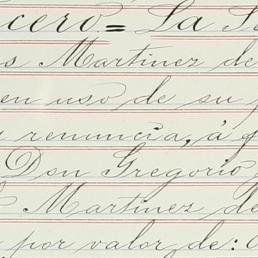 cero = La Se
s Martinez de
en uso de su p
renuncia, á q
Don Gregorio
Martinez de
por valor de: C